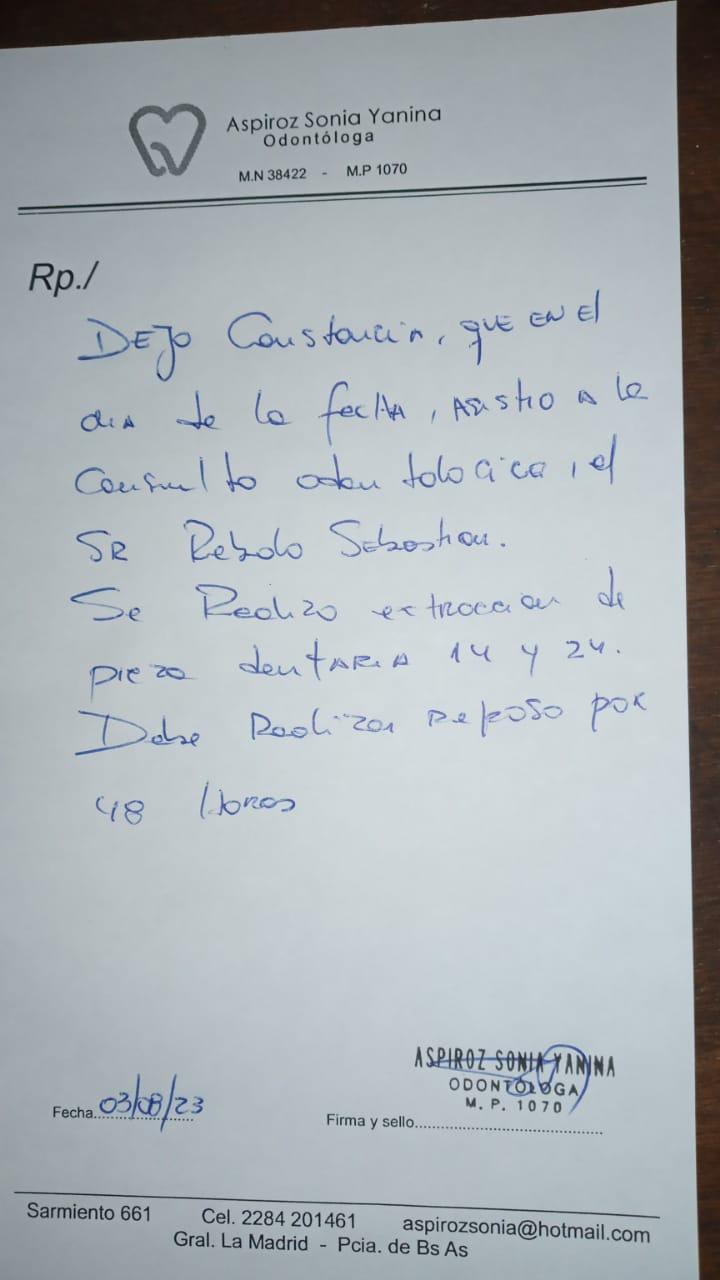 Aspiroz Sonia Yanina
Odontóloga
M.N 38422 - M.P 1070
Rp./
DEJO Constancia, QUE EN El
dia de la fecha, Asistio a la
Consulta odontologica, el
SR Rebolo Sebastian.
Se Realizo extraccion de
pieza dentaria 14 y 24.
Debe Realizar Reposo por
48 Horas
ASPIROZ SONIA YANINA
ODONTÓLOGA
M. P. 1070
Fecha 03/08/23
Firma y sello
Sarmiento 661 Cel. 2284 201461 aspirozsonia@hotmail.com
Gral. La Madrid - Pcia. de Bs As